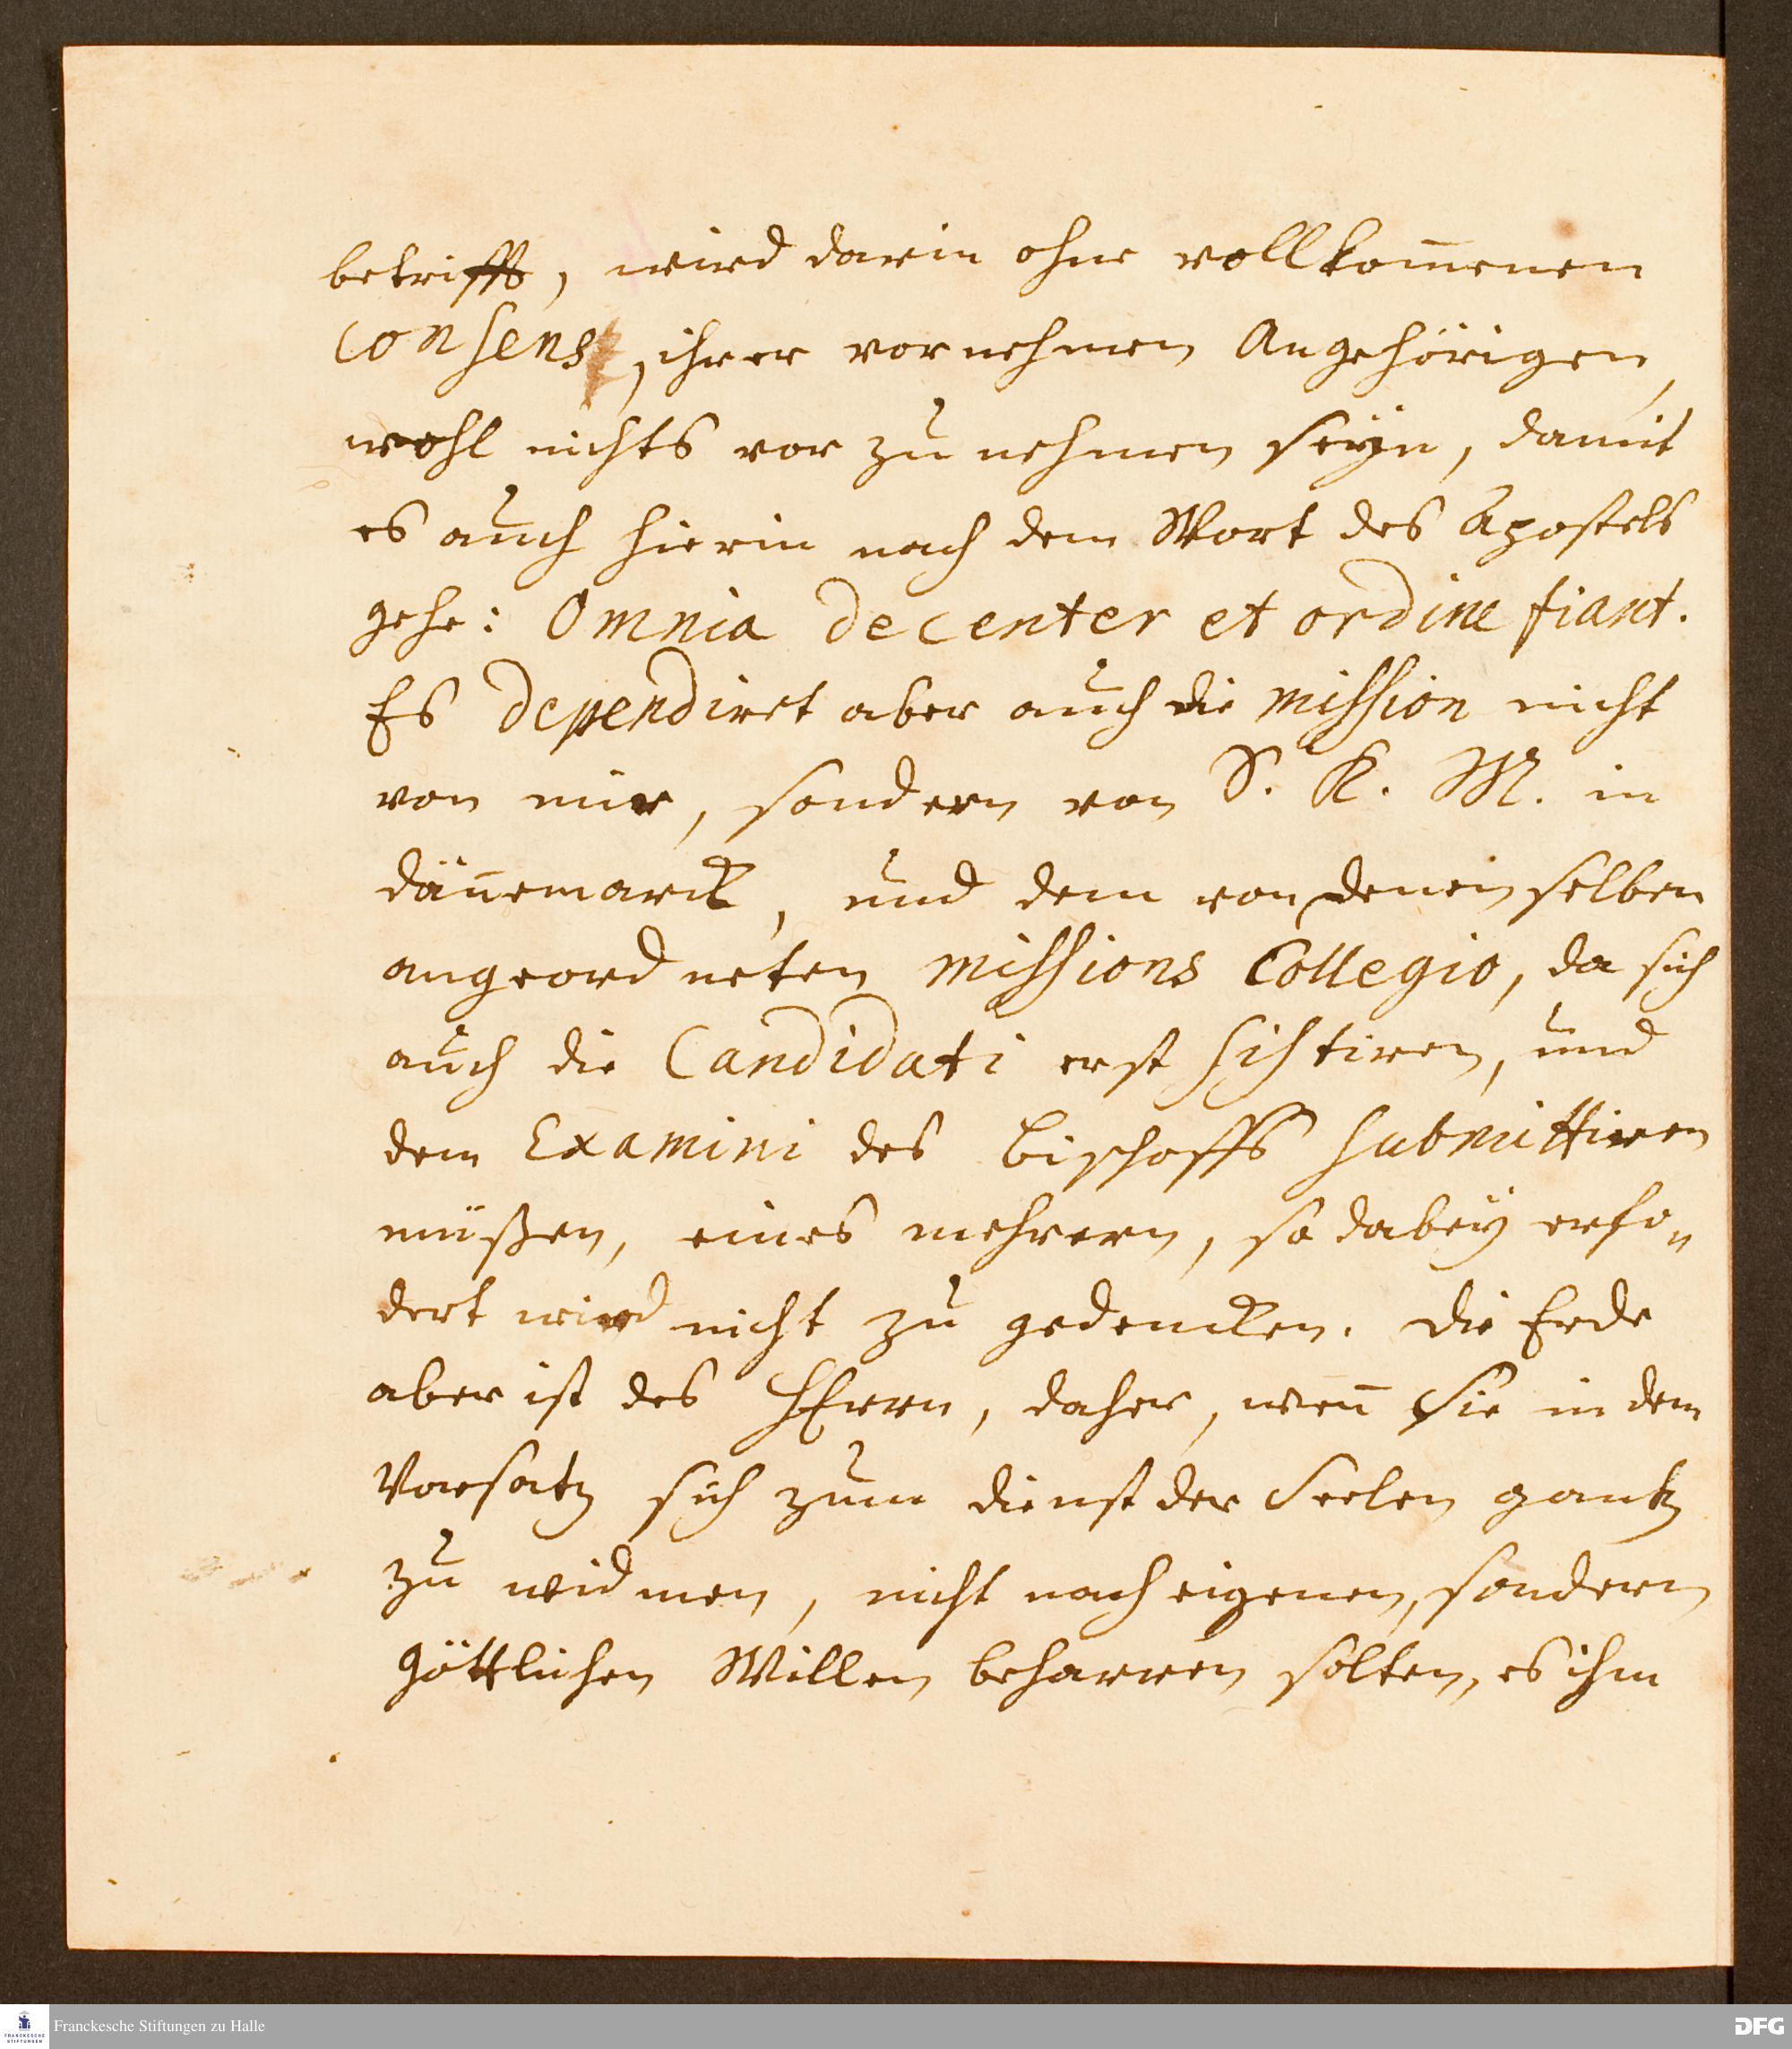 betrifft, wird darin ohne vollkom̅enen
Consens, ihrer vornehmen Angehörigen,
wohl nichts vor zu nehmen seÿn, damit
es auch hierin nach dem Wort des Apostels
gehe: Omnia decenter et ordine fiant.
Es dependiret aber auch die Mission nicht
von mir, sondern von S. K. M. in
Dän̅emarck, und dem von denenselben
angeordneten Missions Collegio, da sich
auch die Candidati erst sistiren, und
dem Examini des Bischoffs submittiren
müßen, eines mehrern, so dabeÿ erfo„
dert wird nicht zu gedencken. Die Erde
aber ist des HErrn, daher, wen̅ Sie in dem
Vorsatz sich zum dienst der Seelen gantz
zu widmen, nicht nach eigenen, sondern
göttlichen Willen beharren solten, es ihm
Franckesche Stiftungen zu Halle
FRANCKESCHE
STIFTUNGEN
DFG